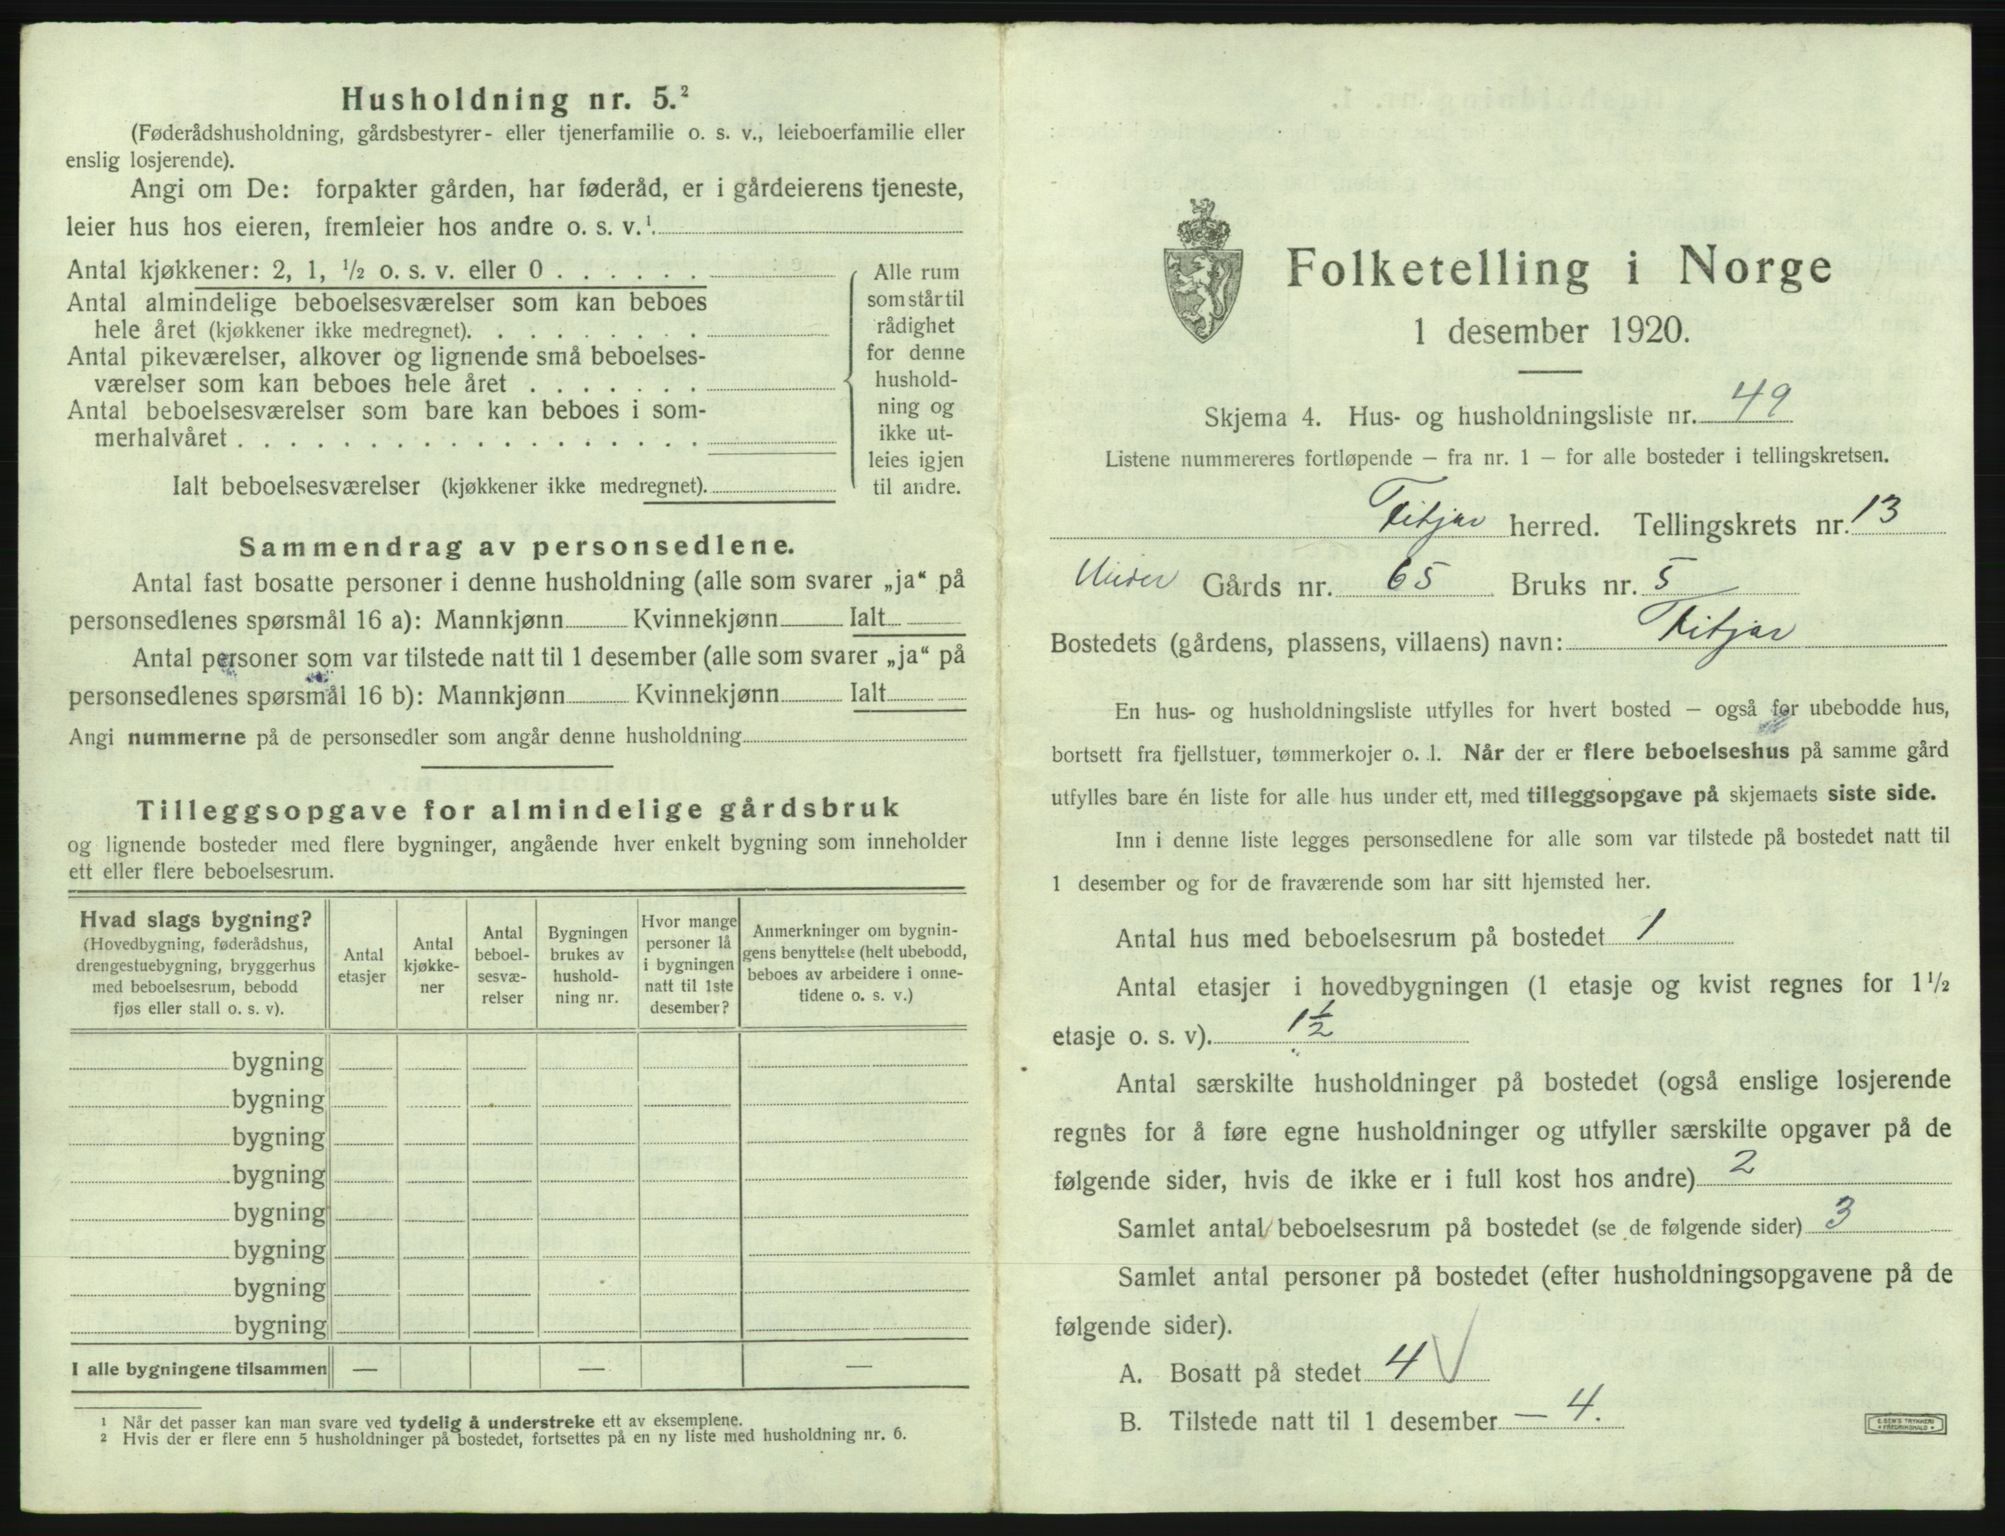 Husholdning nr. 5.²
(Føderådshusholdning, gårdsbestyrer- eller tjenerfamilie o. s. v., leieboerfamilie eller
enslig losjerende).
Angi om De: forpakter gården, har føderåd, er i gårdeierens tjeneste,
leier hus hos eieren, fremleier hos andre o. s. v.¹
Antal kjøkkener: 2, 1, ½ o. s. v. eller 0 . . . . . .
Antal almindelige beboelsesværelser som kan beboes
hele året (kjøkkener ikke medregnet). . . . . . . . .
Antal pikeværelser, alkover og lignende små beboelses-
værelser som kan beboes hele året . . . . . . .
Antal beboelsesværelser som bare kan beboes i som-
merhalvåret . . . . . . . . . . . . . . . . . .
Ialt beboelsesværelser (kjøkkener ikke medregnet).
Alle rum
som står til
rådighet
for denne
hushold-
ning og
ikke ut-
leies igjen
til andre.
Sammendrag av personsedlene.
Antal fast bosatte personer i denne husholdning (alle som svarer „ja“ på
personsedlenes spørsmål 16 a): Mannkjønn Kvinnekjønn Ialt
Antal personer som var tilstede natt til 1 desember (alle som svarer „ja“ på
personsedlenes spørsmål 16 b): Mannkjønn Kvinnekjønn Ialt
Angi nummerne på de personsedler som angår denne husholdning
Tilleggsopgave for almindelige gårdsbruk
og lignende bosteder med flere bygninger, angående hver enkelt bygning som inneholder
ett eller flere beboelsesrum.
Hvad slags bygning?
(Hovedbygning, føderådshus,
drengestuebygning, bryggerhus
med beboelsesrum, bebodd
fjøs eller stall o. s. v).
Antal
etasjer
Antal
kjøkke-
ner
Antal
beboel-
sesvæ-
relser
Bygningen
brukes av
hushold-
ning nr.
Hvor mange
personer lå
i bygningen
natt til 1ste
desember?
Anmerkninger om bygnin-
gens benyttelse (helt ubebodd,
beboes av arbeidere i onne-
tidene o. s. v.)
bygning
bygning
bygning
bygning
bygning
bygning
bygning
bygning
I alle bygningene tilsammen — — —
¹ Når det passer kan man svare ved tydelig å understreke ett av eksemplene.
² Hvis der er flere enn 5 husholdninger på bostedet, fortsettes på en ny liste med husholdning nr. 6.
Folketelling i Norge
1 desember 1920.
Skjema 4. Hus- og husholdningsliste nr. 49
Listene nummereres fortløpende — fra nr. 1 — for alle bosteder i tellingskretsen.
Fitjar herred. Tellingskrets nr. 13
Under Gårds nr. 65 Bruks nr. 5
Bostedets (gårdens, plassens, villaens) navn: Fitjar
En hus- og husholdningsliste utfylles for hvert bosted — også for ubebodde hus,
bortsett fra fjellstuer, tømmerkojer o. l. Når der er flere beboelseshus på samme gård
utfylles bare én liste for alle hus under ett, med tilleggsopgave på skjemaets siste side.
Inn i denne liste legges personsedlene for alle som var tilstede på bostedet natt til
1 desember og for de fraværende som har sitt hjemsted her.
Antal hus med beboelsesrum på bostedet 1
Antal etasjer i hovedbygningen (1 etasje og kvist regnes for 1½
etasje o. s. v). 1½
Antal særskilte husholdninger på bostedet (også enslige losjerende
regnes for å føre egne husholdninger og utfyller særskilte opgaver på de
følgende sider, hvis de ikke er i full kost hos andre) 2
Samlet antal beboelsesrum på bostedet (se de følgende sider) 3
Samlet antal personer på bostedet (efter husholdningsopgavene på de
følgende sider).
A. Bosatt på stedet 4 √
B. Tilstede natt til 1 desember — 4.
E. SEM'S TRYKKERI
FREDRIKSHALD